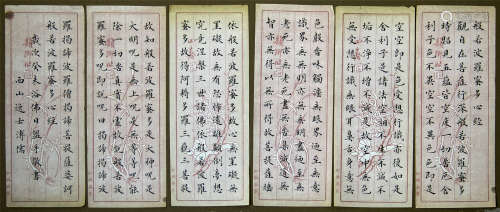 般若波羅蜜多心經
觀自在菩薩行深般若波羅蜜多
時照見五蘊皆空度一切苦厄舍
利子色不異空空不異色色即是
空空即是色受想行識亦復如是
舍利子是諸法空相不生不滅不
垢不淨不增不減是故空中無色
無受想行識無眼耳鼻舌身意無
色聲香味觸法無眼界乃至無意
識界無無明亦無無明盡乃至無
老死亦無老死盡無苦集滅道無
智亦無得以無所得故菩提薩埵
依般若波羅蜜多故心無罣礙無
罣礙故無有恐怖遠離顛倒夢想
究竟涅槃三世諸佛依般若波羅
蜜多故得阿耨多羅三藐三菩提
故知般若波羅蜜多是大神咒是
大明咒是無上咒是無等等咒能
除一切苦真實不虛故說般若波
羅蜜多咒即說咒曰揭諦揭諦波
羅揭諦波羅僧揭諦菩提薩婆訶
般若波羅蜜多心經
歲次癸未浴佛日盥手敬書
西山逸士溥儒